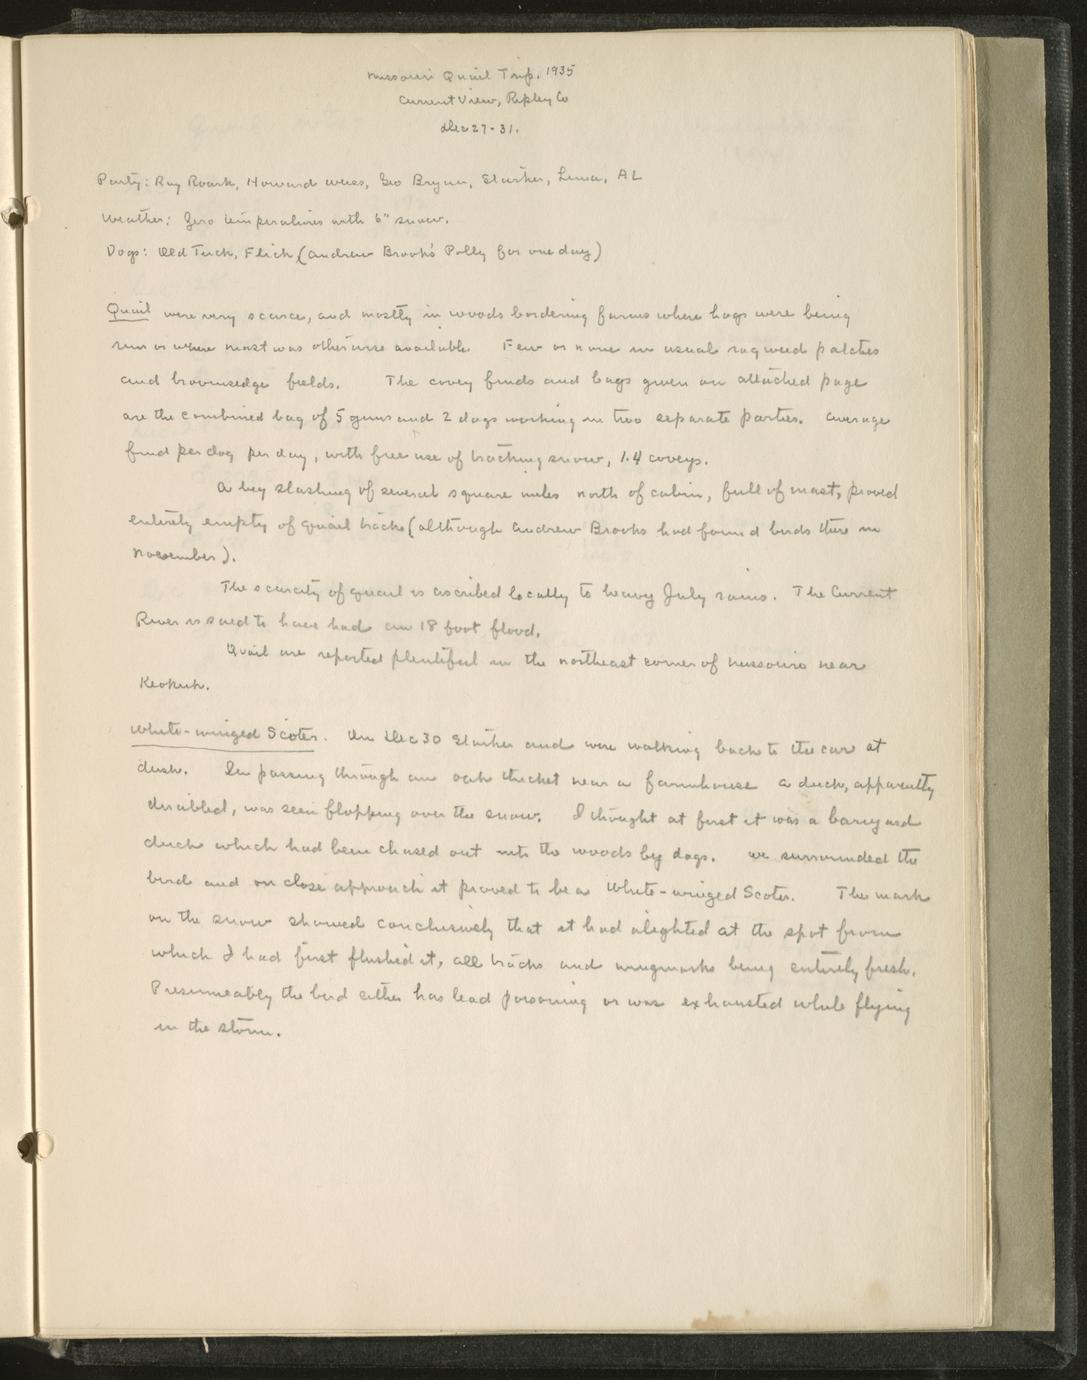 Missouri Quail Trip. 1935
Current View, Ripley Co
Dec 27-31.
Party: Ray Roark, Howard Weiss, Geo Bryan, Starker, Luna, AL
Weather: Zero temperatures with 6" snow.
Dogs: Old Tuck, Flick (Andrew Brook's Polly for one day)
Quail were very scarce, and mostly in woods bordering farms where hogs were being
run or where mast was otherwise available. Few or none in usual ragweed patches
and broomsedge fields. The covey finds and bags given on attached page
are the combined bag of 5 guns and 2 dogs working in two separate parties. Average
find per dog per day, with free use of tracking snow, 1.4 coveys.
A big slashing of several square miles north of cabin, full of mast, proved
entirely empty of quail tracks (although Andrew Brooks had found birds there in
November).
The scarcity of quail is ascribed locally to heavy July rains. The Current
River is said to have had an 18 foot flood.
Quail are reported plentiful in the northeast corner of Missouri near
Keokuk.
White-winged Scoter. On Dec 30 Starker and were walking back to the car at
dusk. In passing through an oak thicket near a farmhouse a duck, apparently
disabled, was seen flopping over the snow. I thought at first it was a barnyard
duck which had been chased out into the woods by dogs. We surrounded the
bird and on close approach it proved to be a White-winged Scoter. The mark
on the snow showed conclusively that it had alighted at the spot from
which I had first flushed it, all tracks and wingmarks being entirely fresh.
Presumeably the bird either has lead poisoning or was exhausted while flying
in the storm.